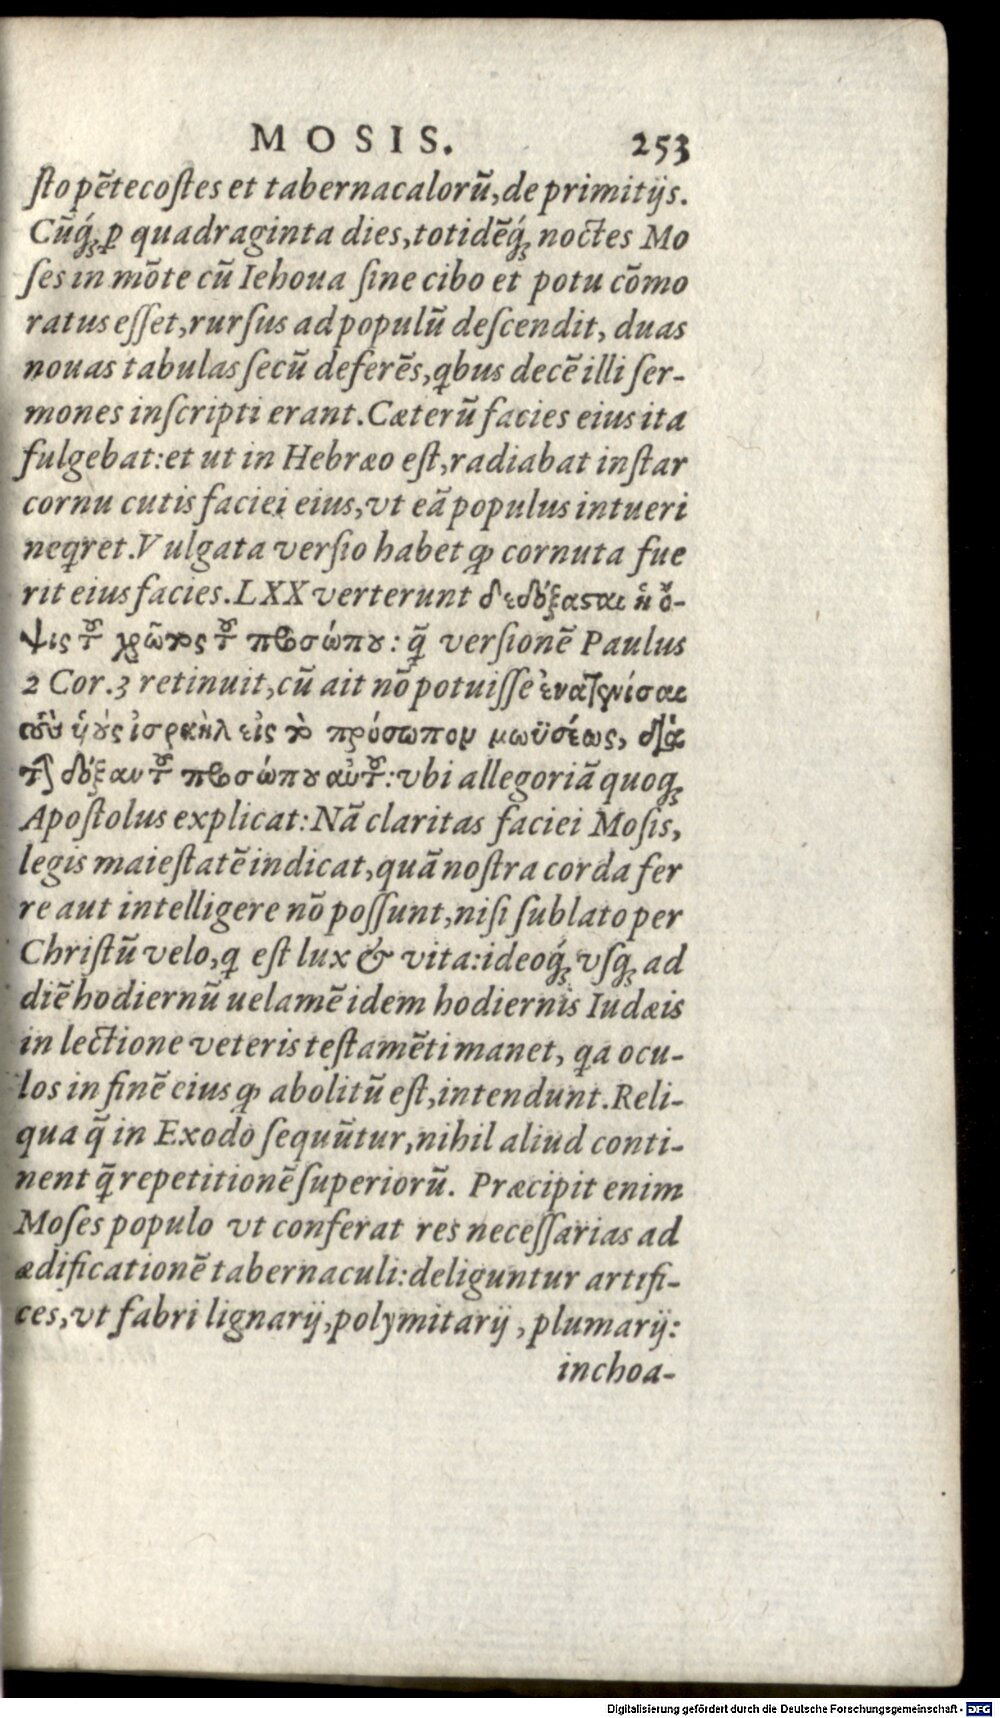 MOSIS. 253
ſto pẽtecoſtes et tabernacalorũ, de primitijs.
Cũq́ꝫ ꝑ quadraginta dies, totidẽq́ꝫ noctes Mo
ſes in mõte cũ Iehoua ſine cibo et potu cõmo
ratus eſſet, rurſus ad populũ deſcendit, duas
nouas tabulas ſecũ deferẽs, qbus decẽ illi ſer-
mones inſcripti erant. Cæterũ facies eius ita
fulgebat: et ut in Hebræo eſt, radiabat inſtar
cornu cutis faciei eius, vt eã populus intueri
neqret. Vulgata verſio habet ꝙ cornuta fue
rit eius facies. LXX verterunt δεδόξασαι ἡ ὄ-
ψις τοῦ χρῶτος τοῦ προσώπου: q̃ verſionẽ Paulus
2 Cor. 3 retinuit, cũ ait nõ potuiſſe ἐνατγνίσαι
τοὺς ἡοὺς ἰσραὴλ εἰς τὸ πρόσωπον μωϋσέως, διὰ
τὴν δόξαν τοῦ προσώπου αὐτοῦ: vbi allegoriã quoqꝫ
Apoſtolus explicat: Nã claritas faciei Moſis,
legis maieſtatẽ indicat, quã noſtra corda fer
re aut intelligere nõ poſſunt, niſi ſublato per
Chriſtũ velo, q eſt lux & vita: ideoq́ꝫ vſqꝫ ad
diẽ hodiernũ uelamẽ idem hodiernis Iudæis
in lectione veteris teſtamẽti manet, qa ocu-
los in finẽ eius ꝙ abolitũ eſt, intendunt. Reli-
qua q̃ in Exodo ſequũtur, nihil aliud conti-
nent q̃ repetitionẽ ſuperiorũ. Præcipit enim
Moſes populo vt conferat res neceſſarias ad
ædificationẽ tabernaculi: deliguntur artifi-
ces, vt fabri lignarij, polymitarij, plumarij:
inchoa-
Digitalisierung gefördert durch die Deutsche Forschungsgemeinschaft - DFG